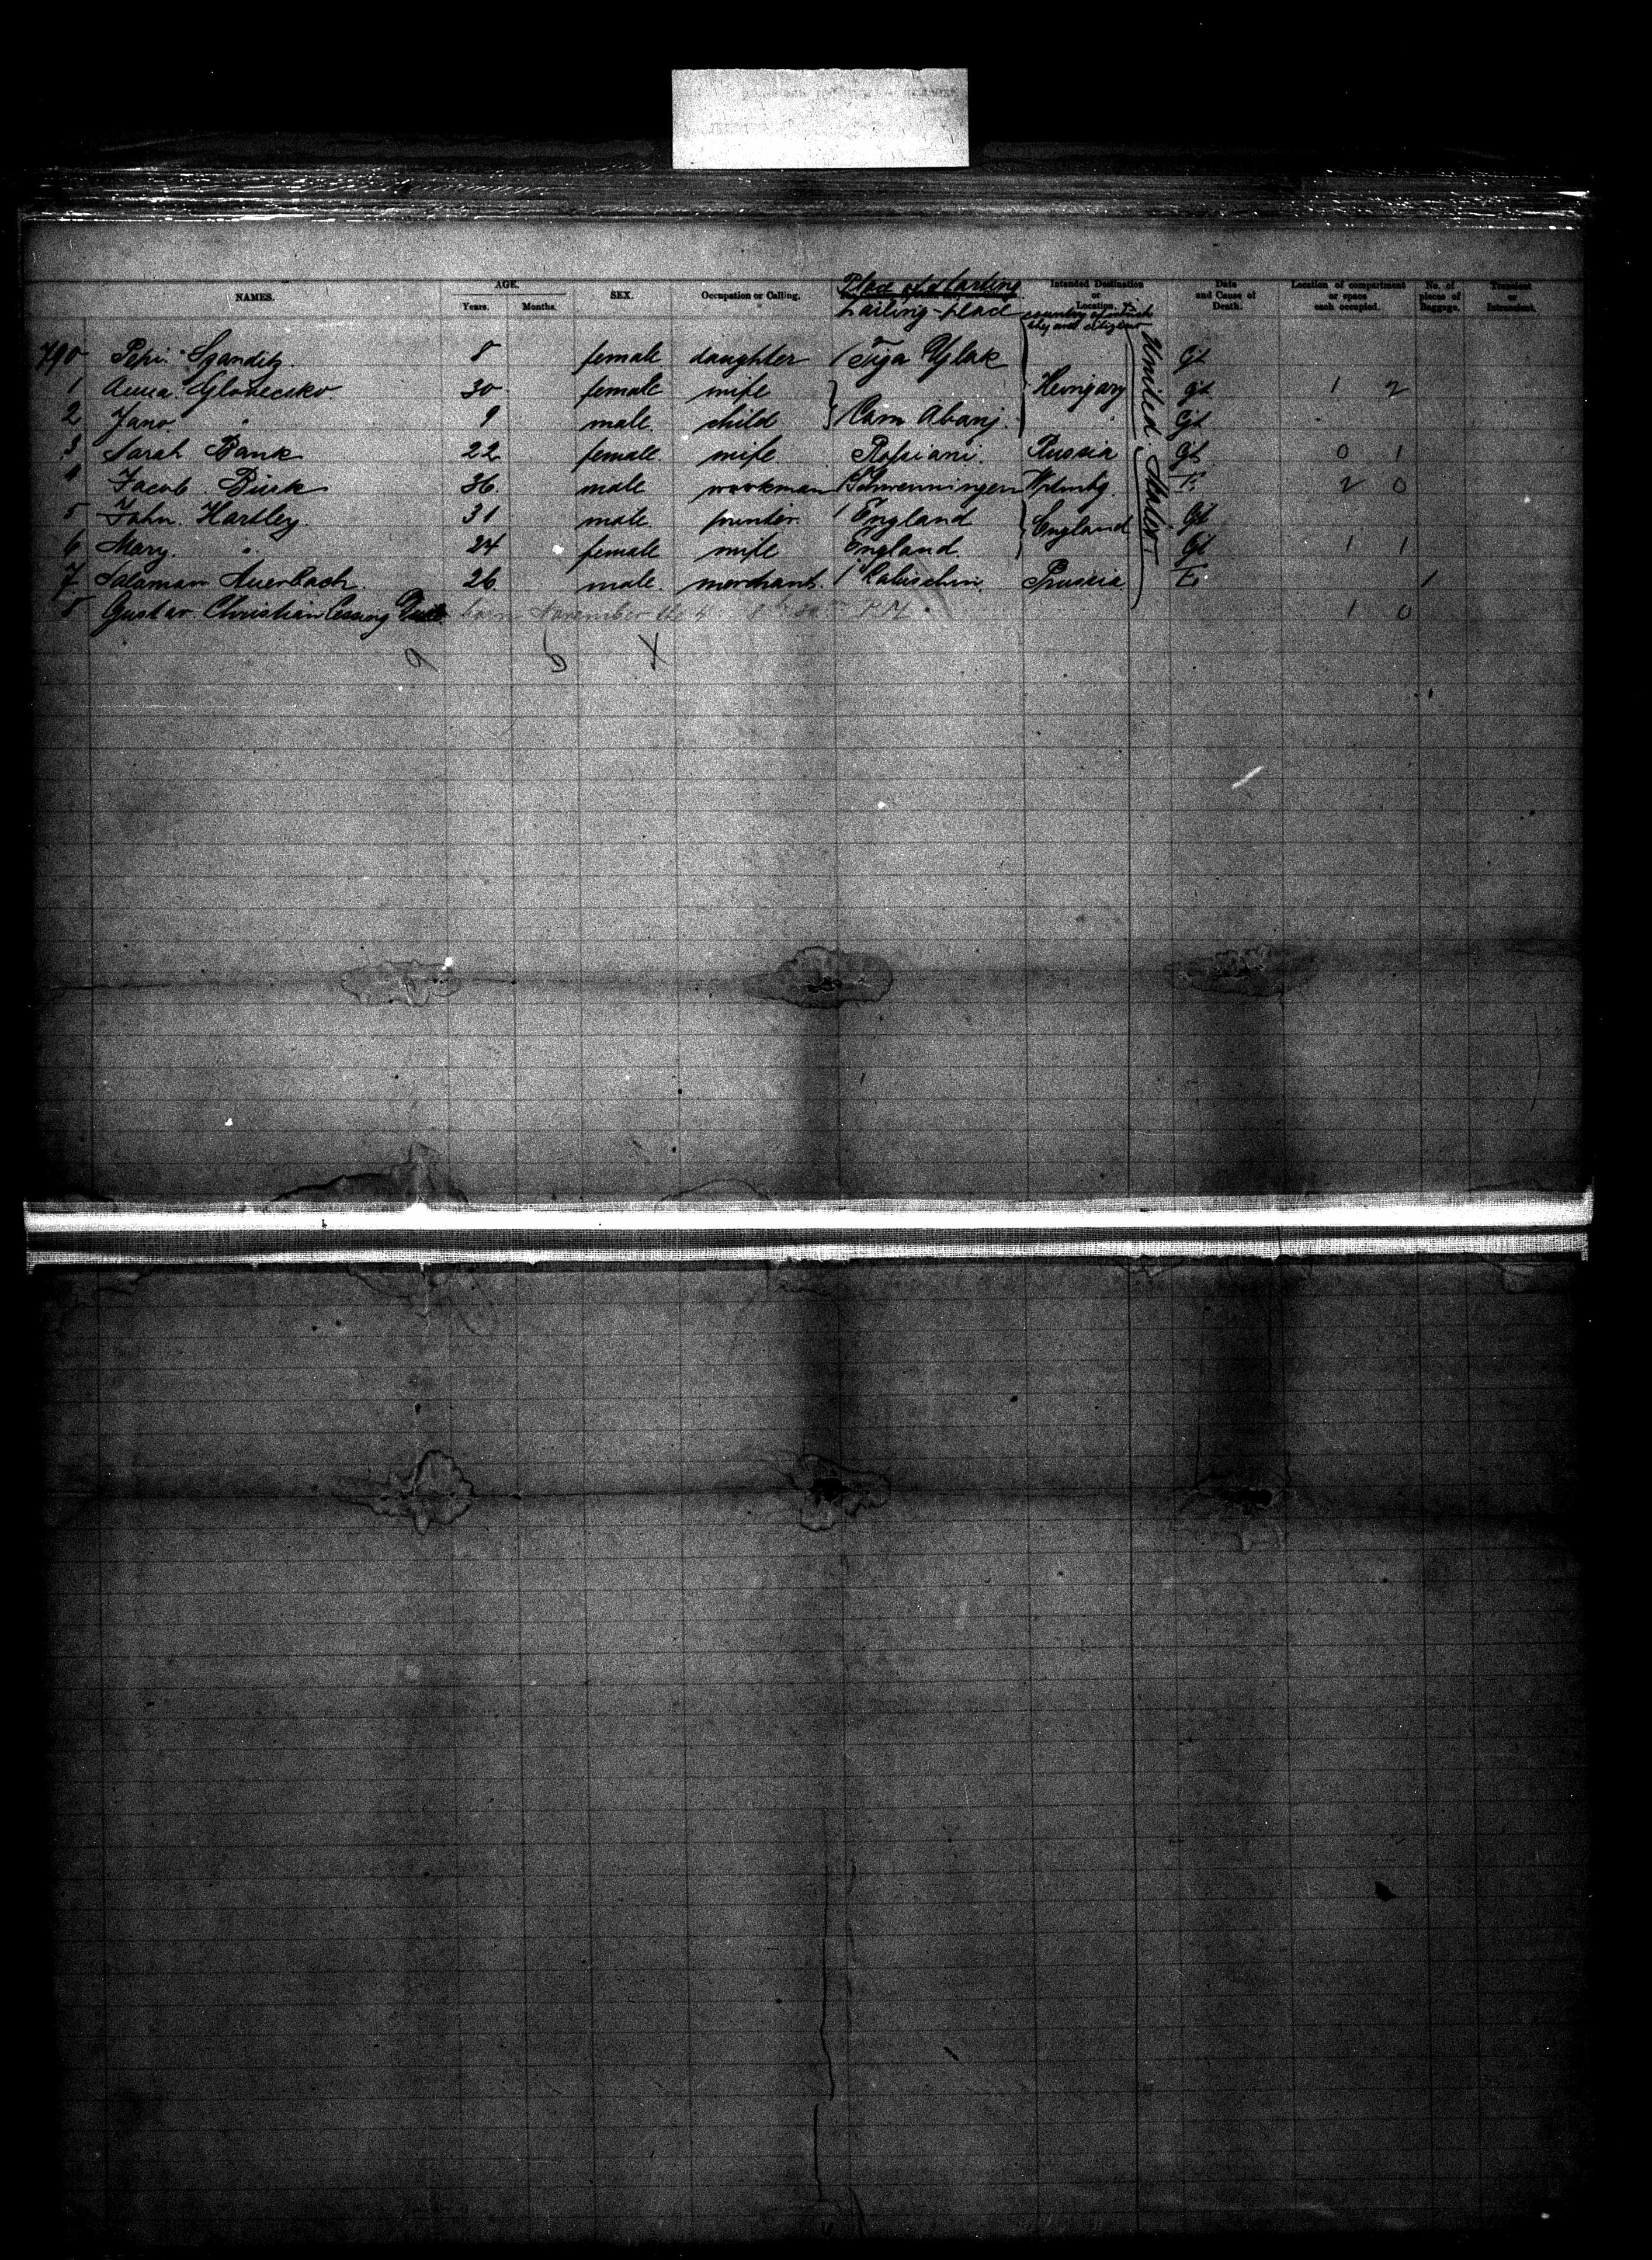 NAMES. AGE. Years. Months. SEX. Occupation or Calling. Place of starting Intended Destination or Location. Date and Cause of Death. Location of compartment or space each occupied. No. of pieces of Baggage. Transient or Intransient.
country of which they are citizens
790 Pepi 8 female daughter Tiga Ujlak Gt
1 Anna 30 female wife Hungary Gt 1 2
2 Jano " 9 male child Cam Abauj " Gt
3 Sarah Bank 22 female wife Russia Gt 0 1
4 Jacob Bürk 36 male workman Schwenningen E 2 0
5 John Hartley 31 male printer England England Gt
6 Mary " 24 female wife England Gt 1 1
7 Salaman Auerbach 26 male merchant Labischin Prussia E 1
8 Gustav Christian born November the 4 1 0
United States